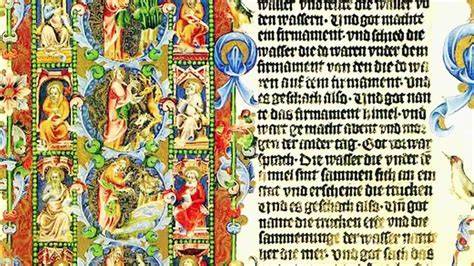 den wassern · Und got machte
ein firmament · und schied die
wasser die do waren vnder dem
firmament · von den die do wa
ren auf dem firmament · Und
es geschach also · Und got nante
das firmament himel · und
wart gemacht abent und mor
gen der ander tag · Got
sprach · Die wasser die vnder
himel sint sammen sich an ein
stat und erscheine die trucken
Und es geschach also · Und got
nante die trucken erde und die
sammenunge der wasser nante
er die mer ·